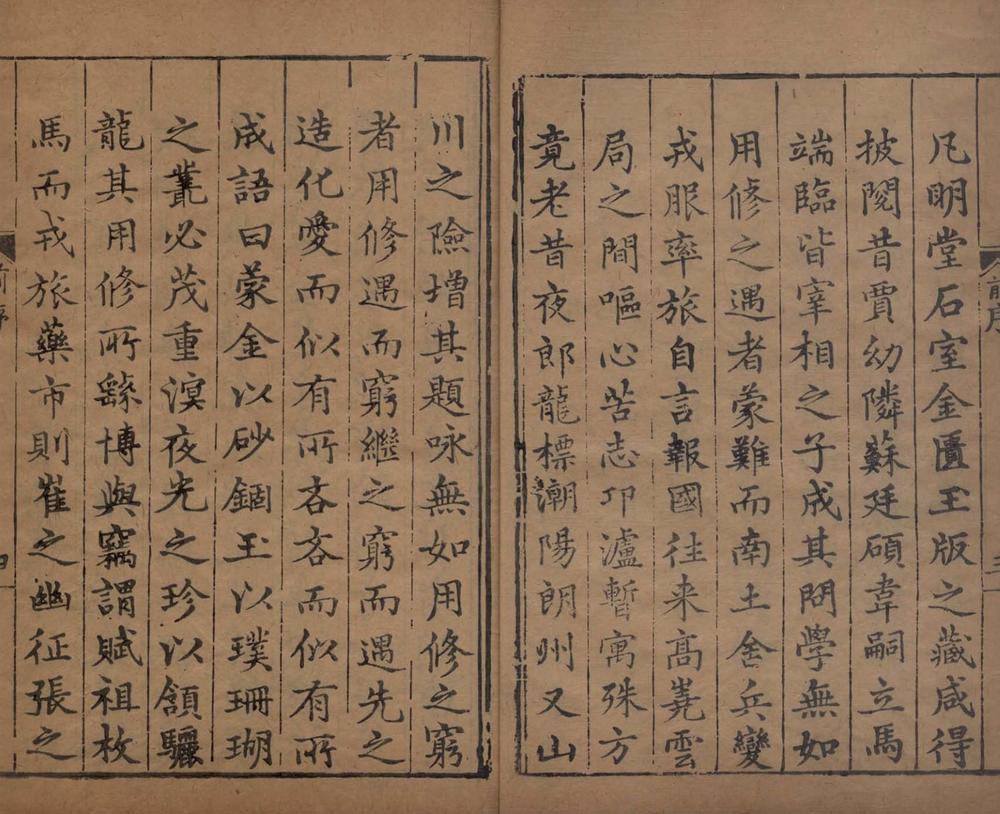 凡明堂石室金匱玉版之藏咸得
披閱昔賈幼隣蘇廷碩韋嗣立馬
端臨皆宰相之子成其問學無如
用修之遇者蒙難而南土舍兵變
戎服率旅自言報國往来髙嶤雲
局之間嘔心苦志卭瀘暫寓殊方
竟老昔夜郎龍標潮陽朗州又山
川之險增其題咏無如用修之窮
者用修遇而窮繼之窮而遇先之
造化愛而似有所吝吝而似有所
成語曰蒙金以砂錮玉以璞珊瑚
之叢必茂重溟夜光之珍以頷驪
龍其用修所繇博與竊謂賦祖枚
馬而戎旅藥市則崔之幽征張之
前序
三
前序
四